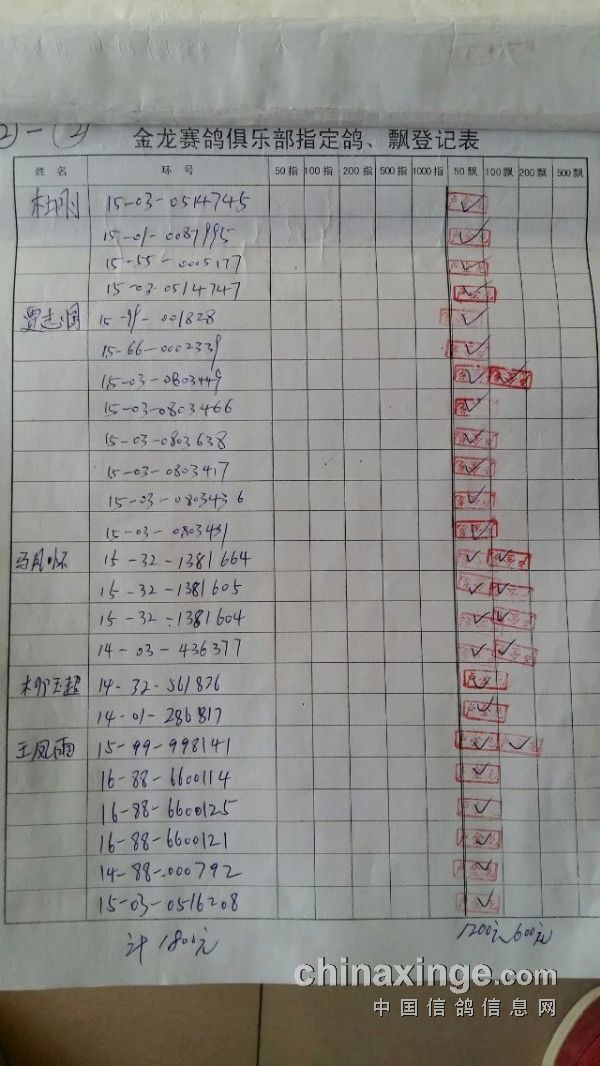 ②-②
金龙赛鸽俱乐部指定鸽、飘登记表
姓名 环号 50指 100指 200指 500指 1000指 50飘 100飘 200飘 500飘
杜刚 15-03-0514745 ✓
15-01-0087995 ✓
15-55-0005177 ✓
15-03-0514747 ✓
贾志国 15-99-001828 ✓
15-66-0002339 ✓
15-03-0803449 ✓ ✓
15-03-0803466 ✓
15-03-0803638 ✓
15-03-0803417 ✓
15-03-0803436 ✓
15-03-0803431 ✓
马凤怀 15-32-1381664 ✓ ✓
15-32-1381605 ✓ ✓
15-32-1381604 ✓ ✓
14-03-436377 ✓ ✓
柳玉超 14-32-561826 ✓
14-01-286817 ✓
王凤雨 15-99-998141 ✓ ✓
16-88-6600114 ✓
16-88-6600125 ✓
16-88-6600121 ✓
14-88-000792 ✓
15-03-0516208 ✓
计 1800元 1200元 600元
chinaxinge.com
中国信鸽信息网